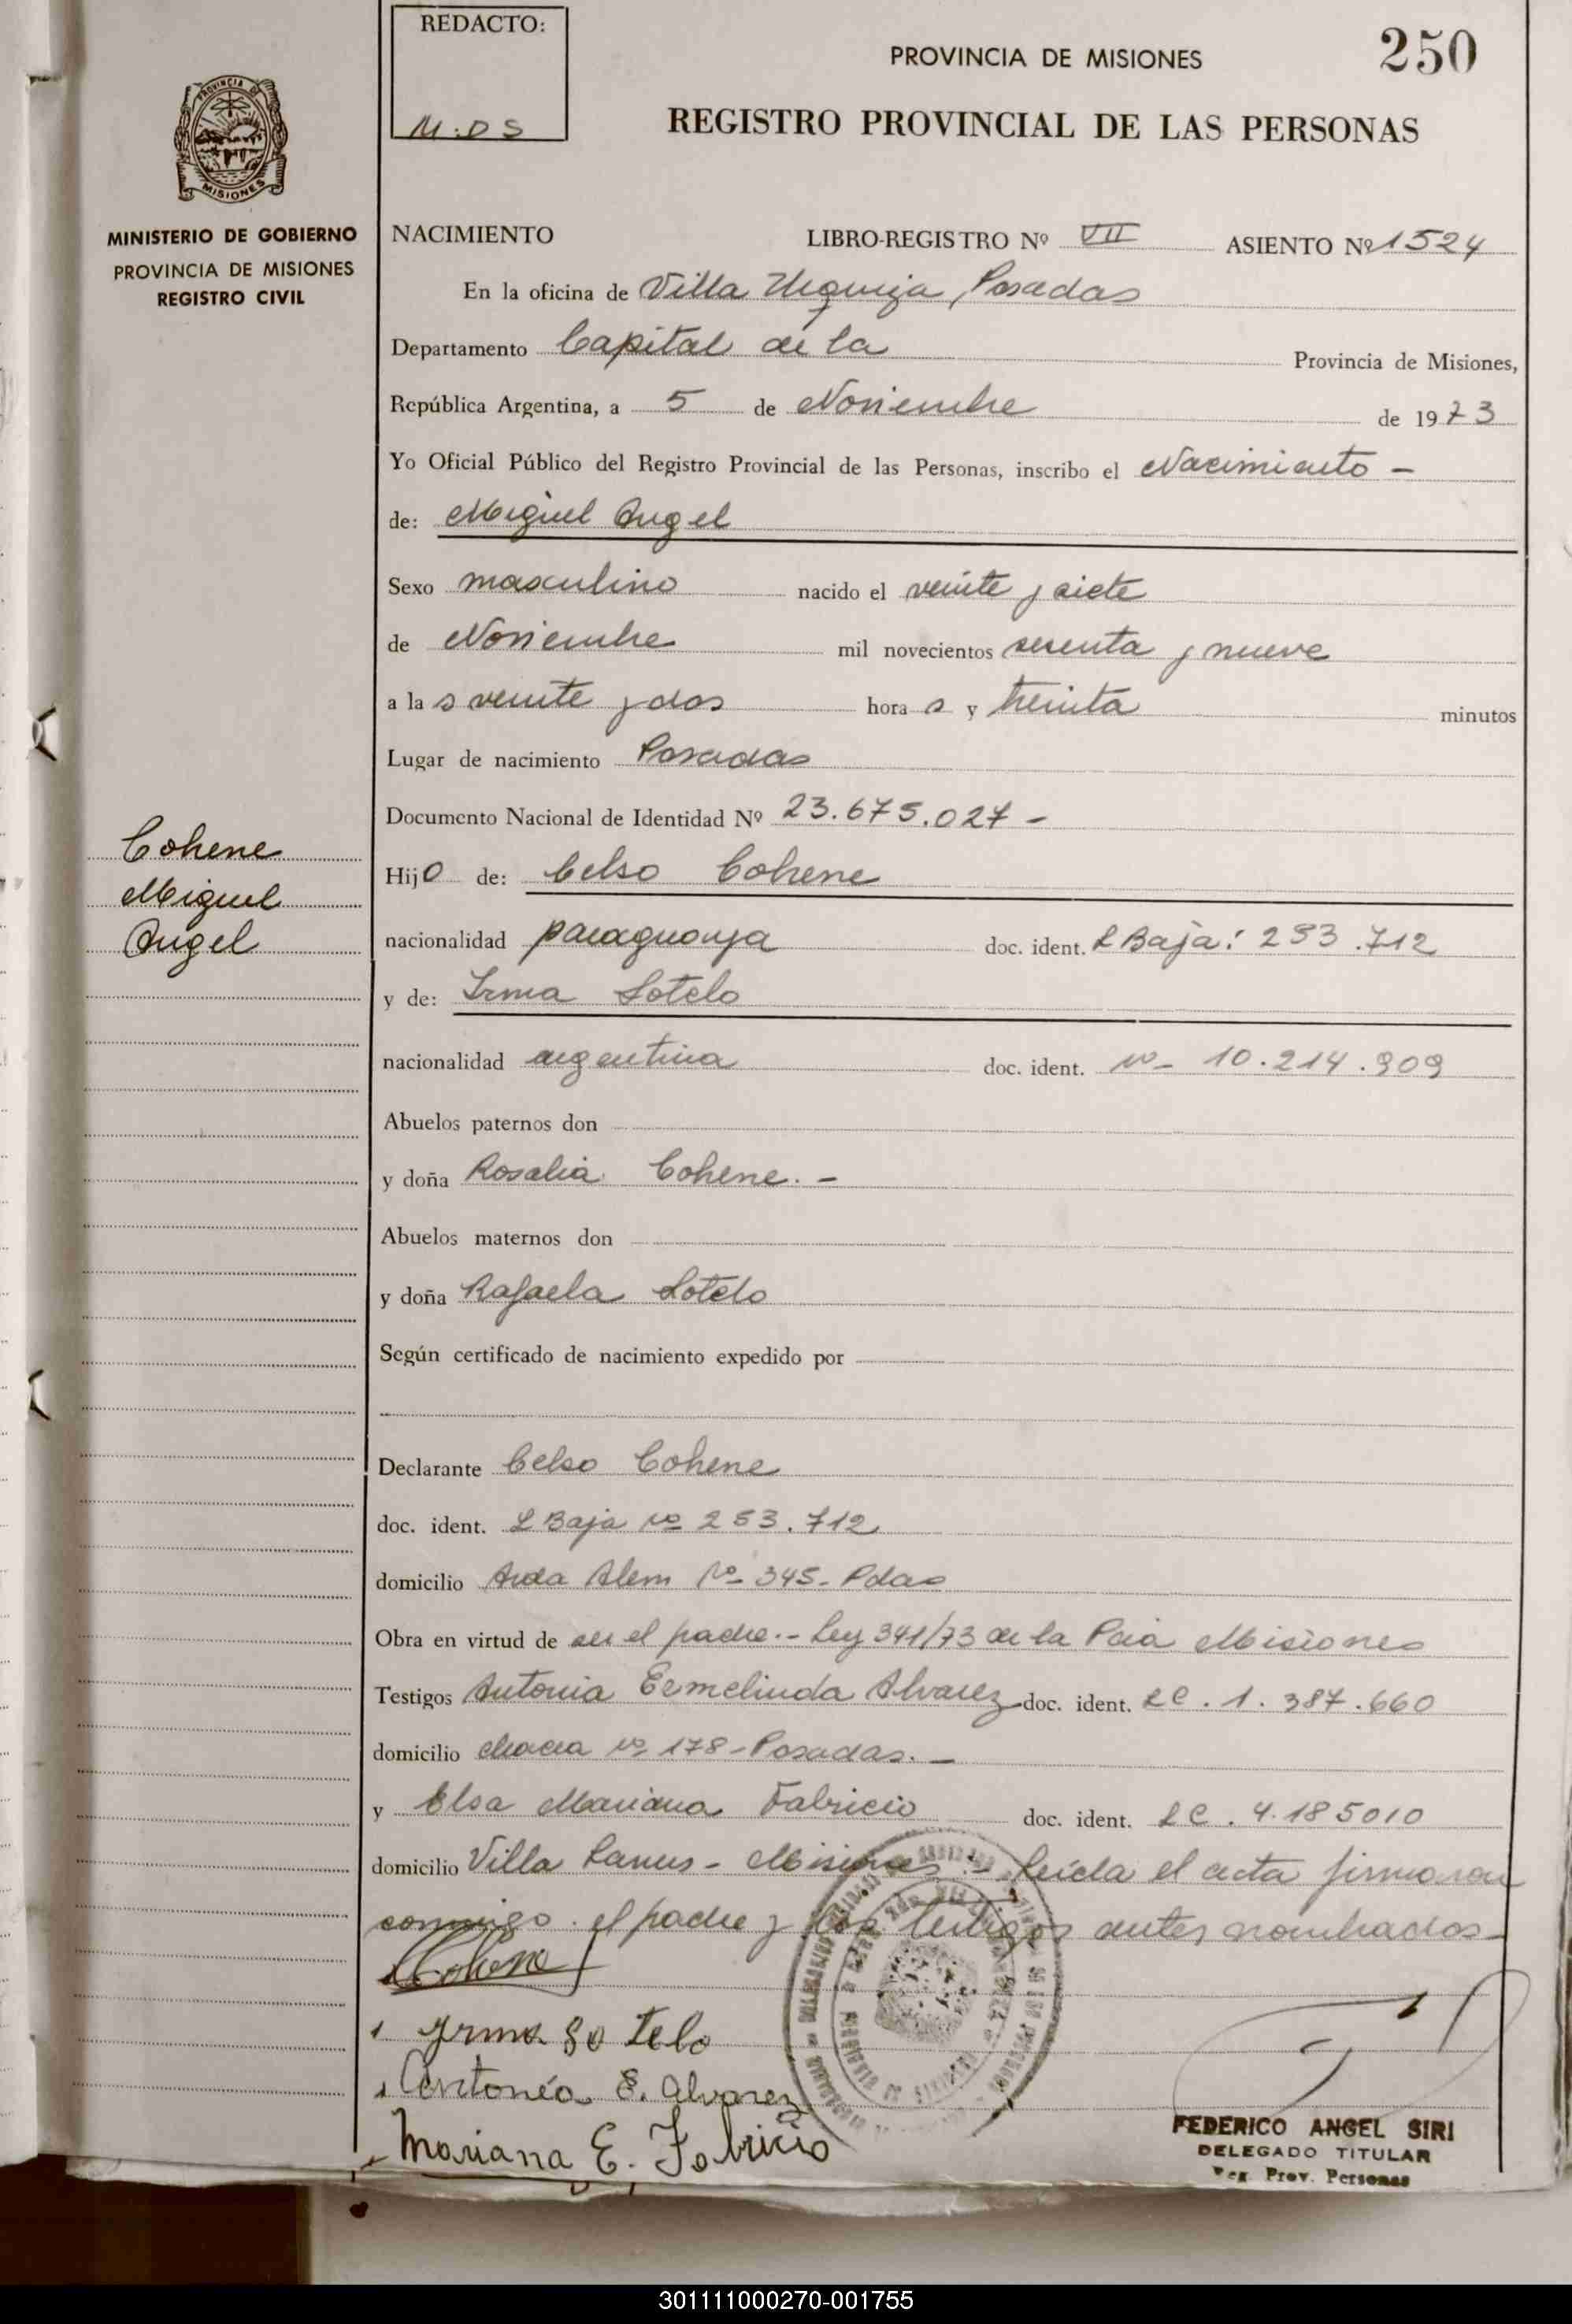 REDACTO:
M.DS
PROVINCIA DE MISIONES
250
REGISTRO PROVINCIAL DE LAS PERSONAS
PROVINCIA DE
MISIONES
MINISTERIO DE GOBIERNO
PROVINCIA DE MISIONES
REGISTRO CIVIL
NACIMIENTO LIBRO-REGISTRO Nº VII ASIENTO Nº 1524
En la oficina de Villa Urquiza, Posadas
Departamento Capital de la Provincia de Misiones,
República Argentina, a 5 de Noviembre de 1973
Yo Oficial Público del Registro Provincial de las Personas, inscribo el Nacimiento -
de: Miguel Angel
Sexo masculino nacido el veinte y siete
de Noviembre mil novecientos sesenta y nueve
a las veinte y dos horas y treinta minutos
Lugar de nacimiento Posadas
Documento Nacional de Identidad Nº 23.675.027 -
Cohene
Miguel
Angel
Hijo de: Celso Cohene
nacionalidad paraguaya doc. ident. L Baja: 253.712
y de: Irma Sotelo
nacionalidad argentina doc. ident. Nº 10.214.909
Abuelos paternos don
y doña Rosalia Cohene. -
Abuelos maternos don
y doña Rafaela Sotelo
Según certificado de nacimiento expedido por
Declarante Celso Cohene
doc. ident. L Baja Nº 253.712
domicilio Avda Alem Nº 345- Pdas
Obra en virtud de ser el padre.- Ley 341/73 de la Pcia Misiones
Testigos Antonia Ermelinda Alvarez doc. ident. LC. 1.387.660
domicilio chacra Nº 178-Posadas. -
y Elsa Mariana Fabricio doc. ident. LC. 4.185010
domicilio Villa Lanus - Misiones - Leida el acta firmaron
conmigo el padre y los testigos antes nombrados-
Cohene
Irma Sotelo
Antonia E. Alvarez
Mariana E. Fabricio
FEDERICO ANGEL SIRI
DELEGADO TITULAR
Reg. Prov. Personas
301111000270-001755